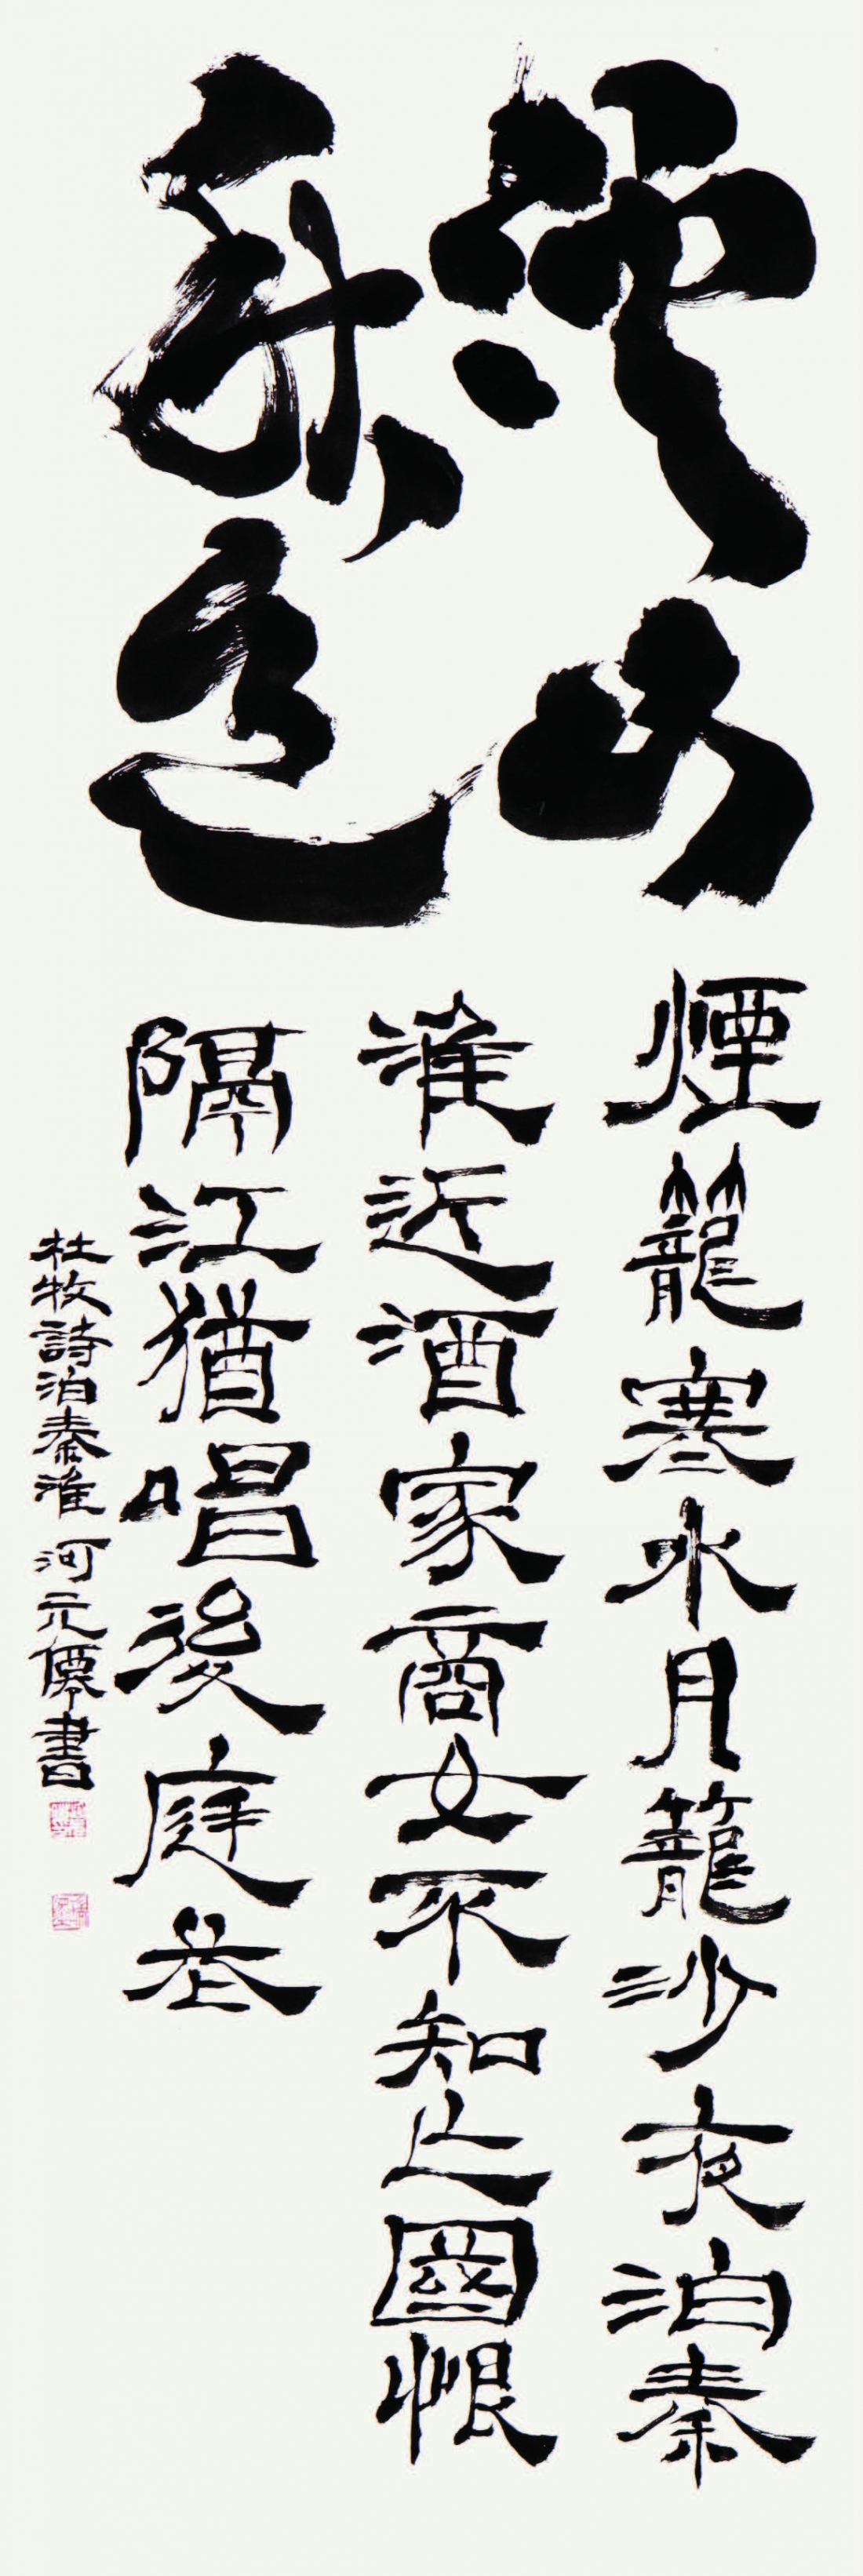 煙籠寒水月籠沙夜泊秦
淮近酒家商女不知亡國恨
隔江猶唱後庭花
杜牧詩泊秦淮 河元僊書